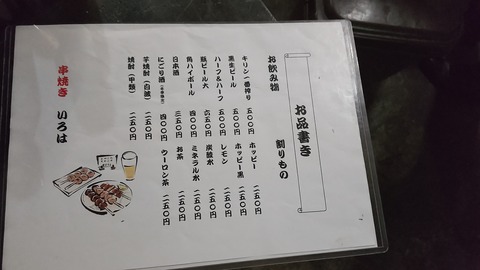 お品書き
お飲み物
キリン一番搾り 五〇〇円
黒生ビール 五〇〇円
ハーフ&ハーフ 五〇〇円
瓶ビール大 六五〇円
角ハイボール 四〇〇円
日本酒 三五〇円
にごり酒 四〇〇円
芋焼酎(白波) 二五〇円
焼酎(甲類) 二五〇円
割りもの
ホッピー 二五〇円
ホッピー黒 二五〇円
レモン 二五〇円
炭酸水 二五〇円
ミネラル水 二五〇円
お茶 二五〇円
ウーロン茶 二五〇円
串焼き いろは